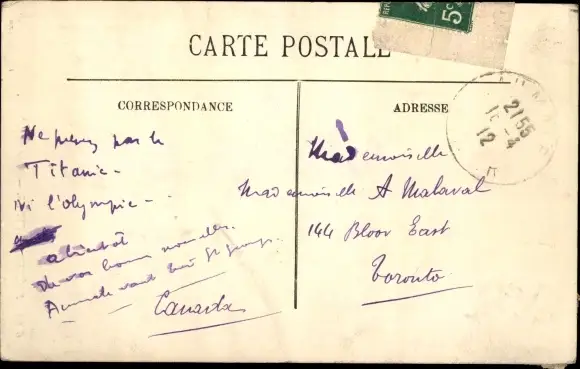 5c
CARTE POSTALE
CORRESPONDANCE
Ne prenez pas le
Titanic -
Ni l'Olympic -
a bientôt
de vos bonnes nouvelles.
ADRESSE
2155
12
Mademoiselle
Mademoiselle A Malaval
144 Bloor East
Toronto
Canada